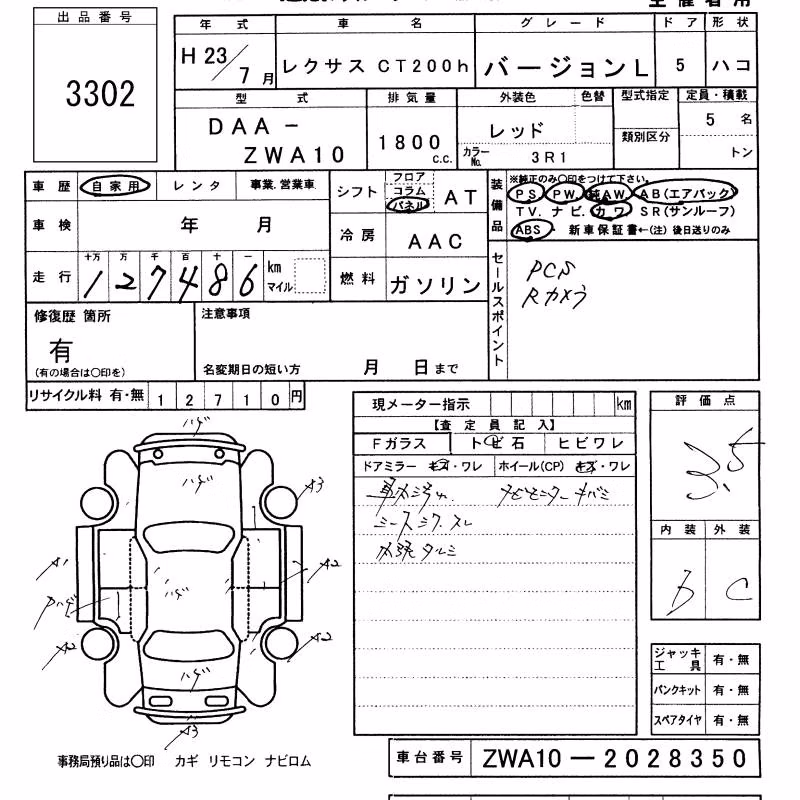 出品番号
3302
年式 車名 グレード ドア 形状
H 23/7月 レクサス CT200h バージョンL 5 ハコ
型式 排気量 外装色 色替 型式指定 定員・積載
DAA－ 1800 レッド 5名
ZWA10 c.c. カラーNo. 3R1 類別区分 トン
車歴 自家用 レンタ 事業.営業車
シフト フロア コラム パネル AT
装備品 ※純正のみ○印をつけて下さい。
PS PW 純AW AB(エアバック)
TV. ナビ. カワ SR(サンルーフ)
ABS・ 新車保証書←(注)後日送りのみ
車検 年 月
冷房 AAC
走行 十万 万 千 百 十 一
127486 km マイル
燃料 ガソリン
セールスポイント
PCS
Rカメラ
修復歴 箇所
有
(有の場合は○印を)
注意事項
名変期日の短い方 月 日まで
リサイクル料 有・無 12710円
現メーター指示 km
【査定員記入】
Fガラス トビ石 ヒビワレ
ドアミラー キズ・ワレ ホイール(CP) キズ・ワレ
シートシワ.スレ
評価点
3.5
内装 外装
b C
ハゲ
ハゲ
A3
A1
A2
ハゲ
A2
A2
ハゲ
A3
ジャッキ工具 有・無
パンクキット 有・無
スペアタイヤ 有・無
事務局預り品は○印 カギ リモコン ナビロム
車台番号 ZWA10－2028350